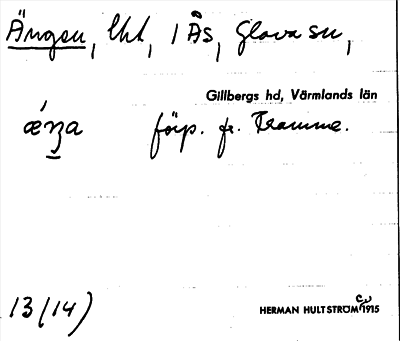 Ängen, lht, 1 Ås, Glava sn,
Gillbergs hd, Värmlands län
ǽŋa förp. fr. Tramme.
13 (14)
HERMAN HULTSTRÖM cv 1915